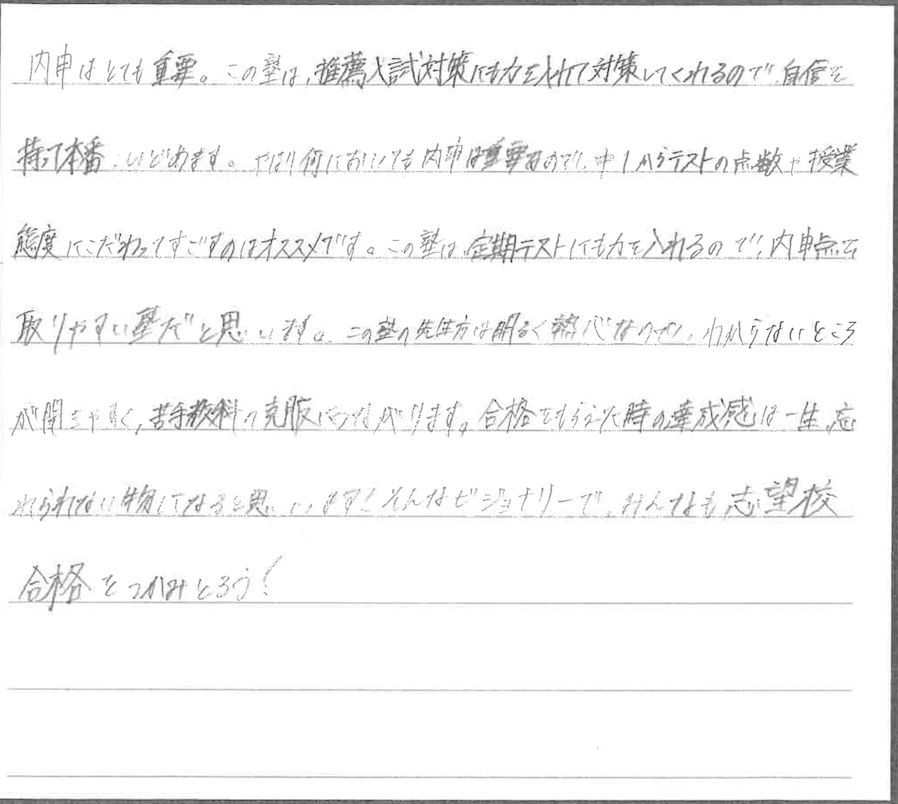 内申はとても重要。この塾は、推薦入試対策にも力を入れて対策してくれるので、自信を
持って本番にいどめます。やはり何においても内申は重要なので、中1からテストの点数や授業
態度にこだわってすごすのはオススメです。この塾は、定期テストにも力を入れるので、内申点を
取りやすい塾だと思います。この塾の先生方は明るく熱心なので、わからないところ
が聞きやすく、苦手教科の克服につながります。合格をもらえた時の達成感は一生、忘
れられない物になると思います！そんなビジョナリーで、みんなも志望校
合格をつかみとろう！